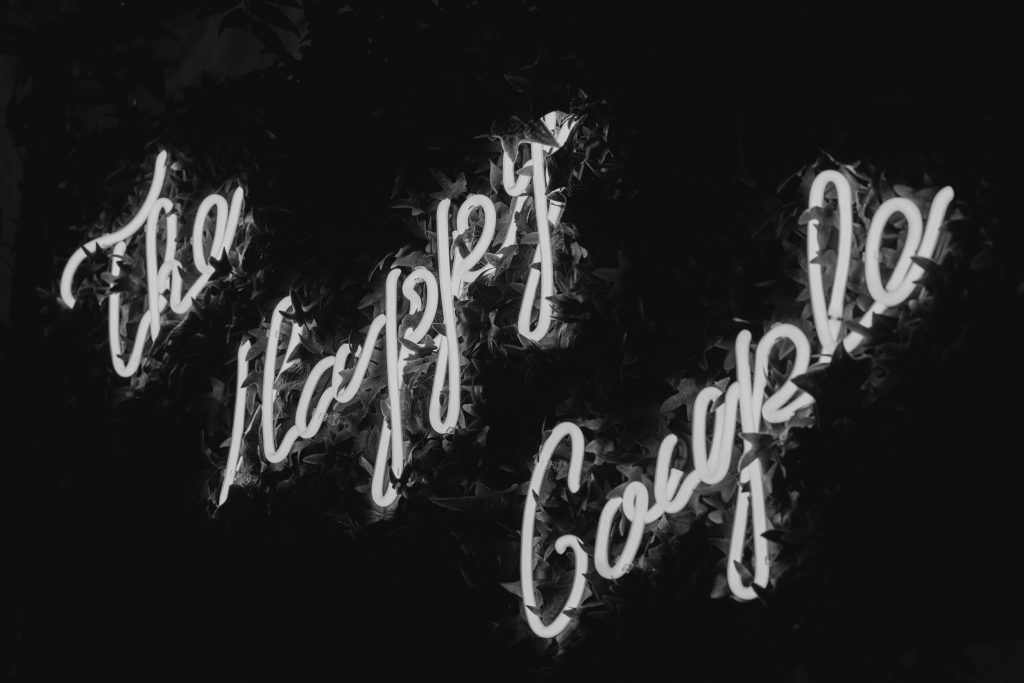 The
Happy
Couple